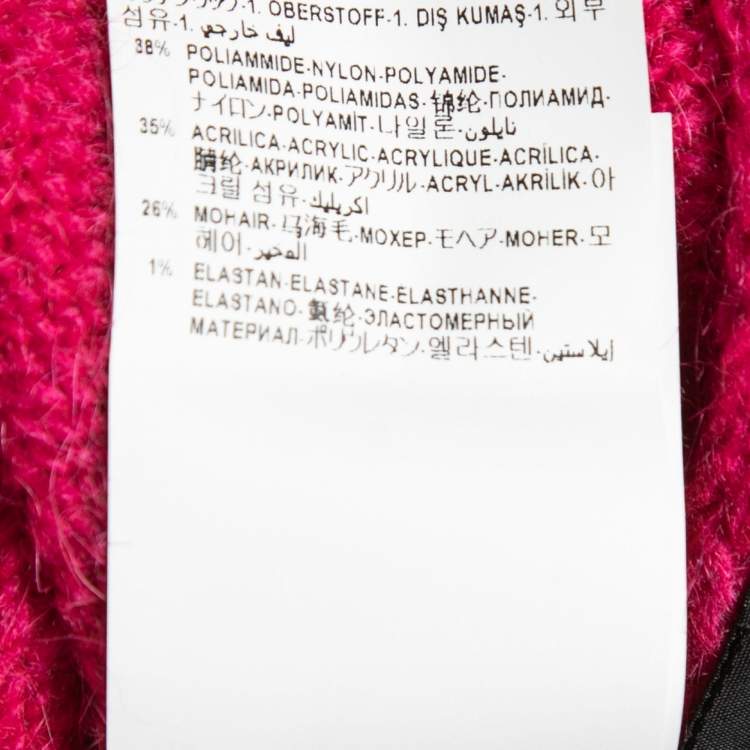 1. OBERSTOFF-1. DIŞ KUMAŞ-1. 외부
섬유-1. ليف خارجي
38% POLIAMMIDE-NYLON-POLYAMIDE-
POLIAMIDA-POLIAMIDAS-锦纶-ПОЛИАМИД-
ナイロン-POLYAMİT-나일론-نايلون
35% ACRILICA-ACRYLIC-ACRYLIQUE-ACRÍLICA-
腈纶-АКРИЛИК-アクリル-ACRYL-AKRİLİK-아
크릴 섬유-اكريليك
26% MOHAIR-马海毛-МОХЕР-モヘア-MOHER-모
헤어-الموهير
1% ELASTAN-ELASTANE-ÉLASTHANNE-
ELASTANO-氨纶-ЭЛАСТОМЕРНЫЙ
МАТЕРИАЛ-ポリウレタン-엘라스텐-إيلاستين